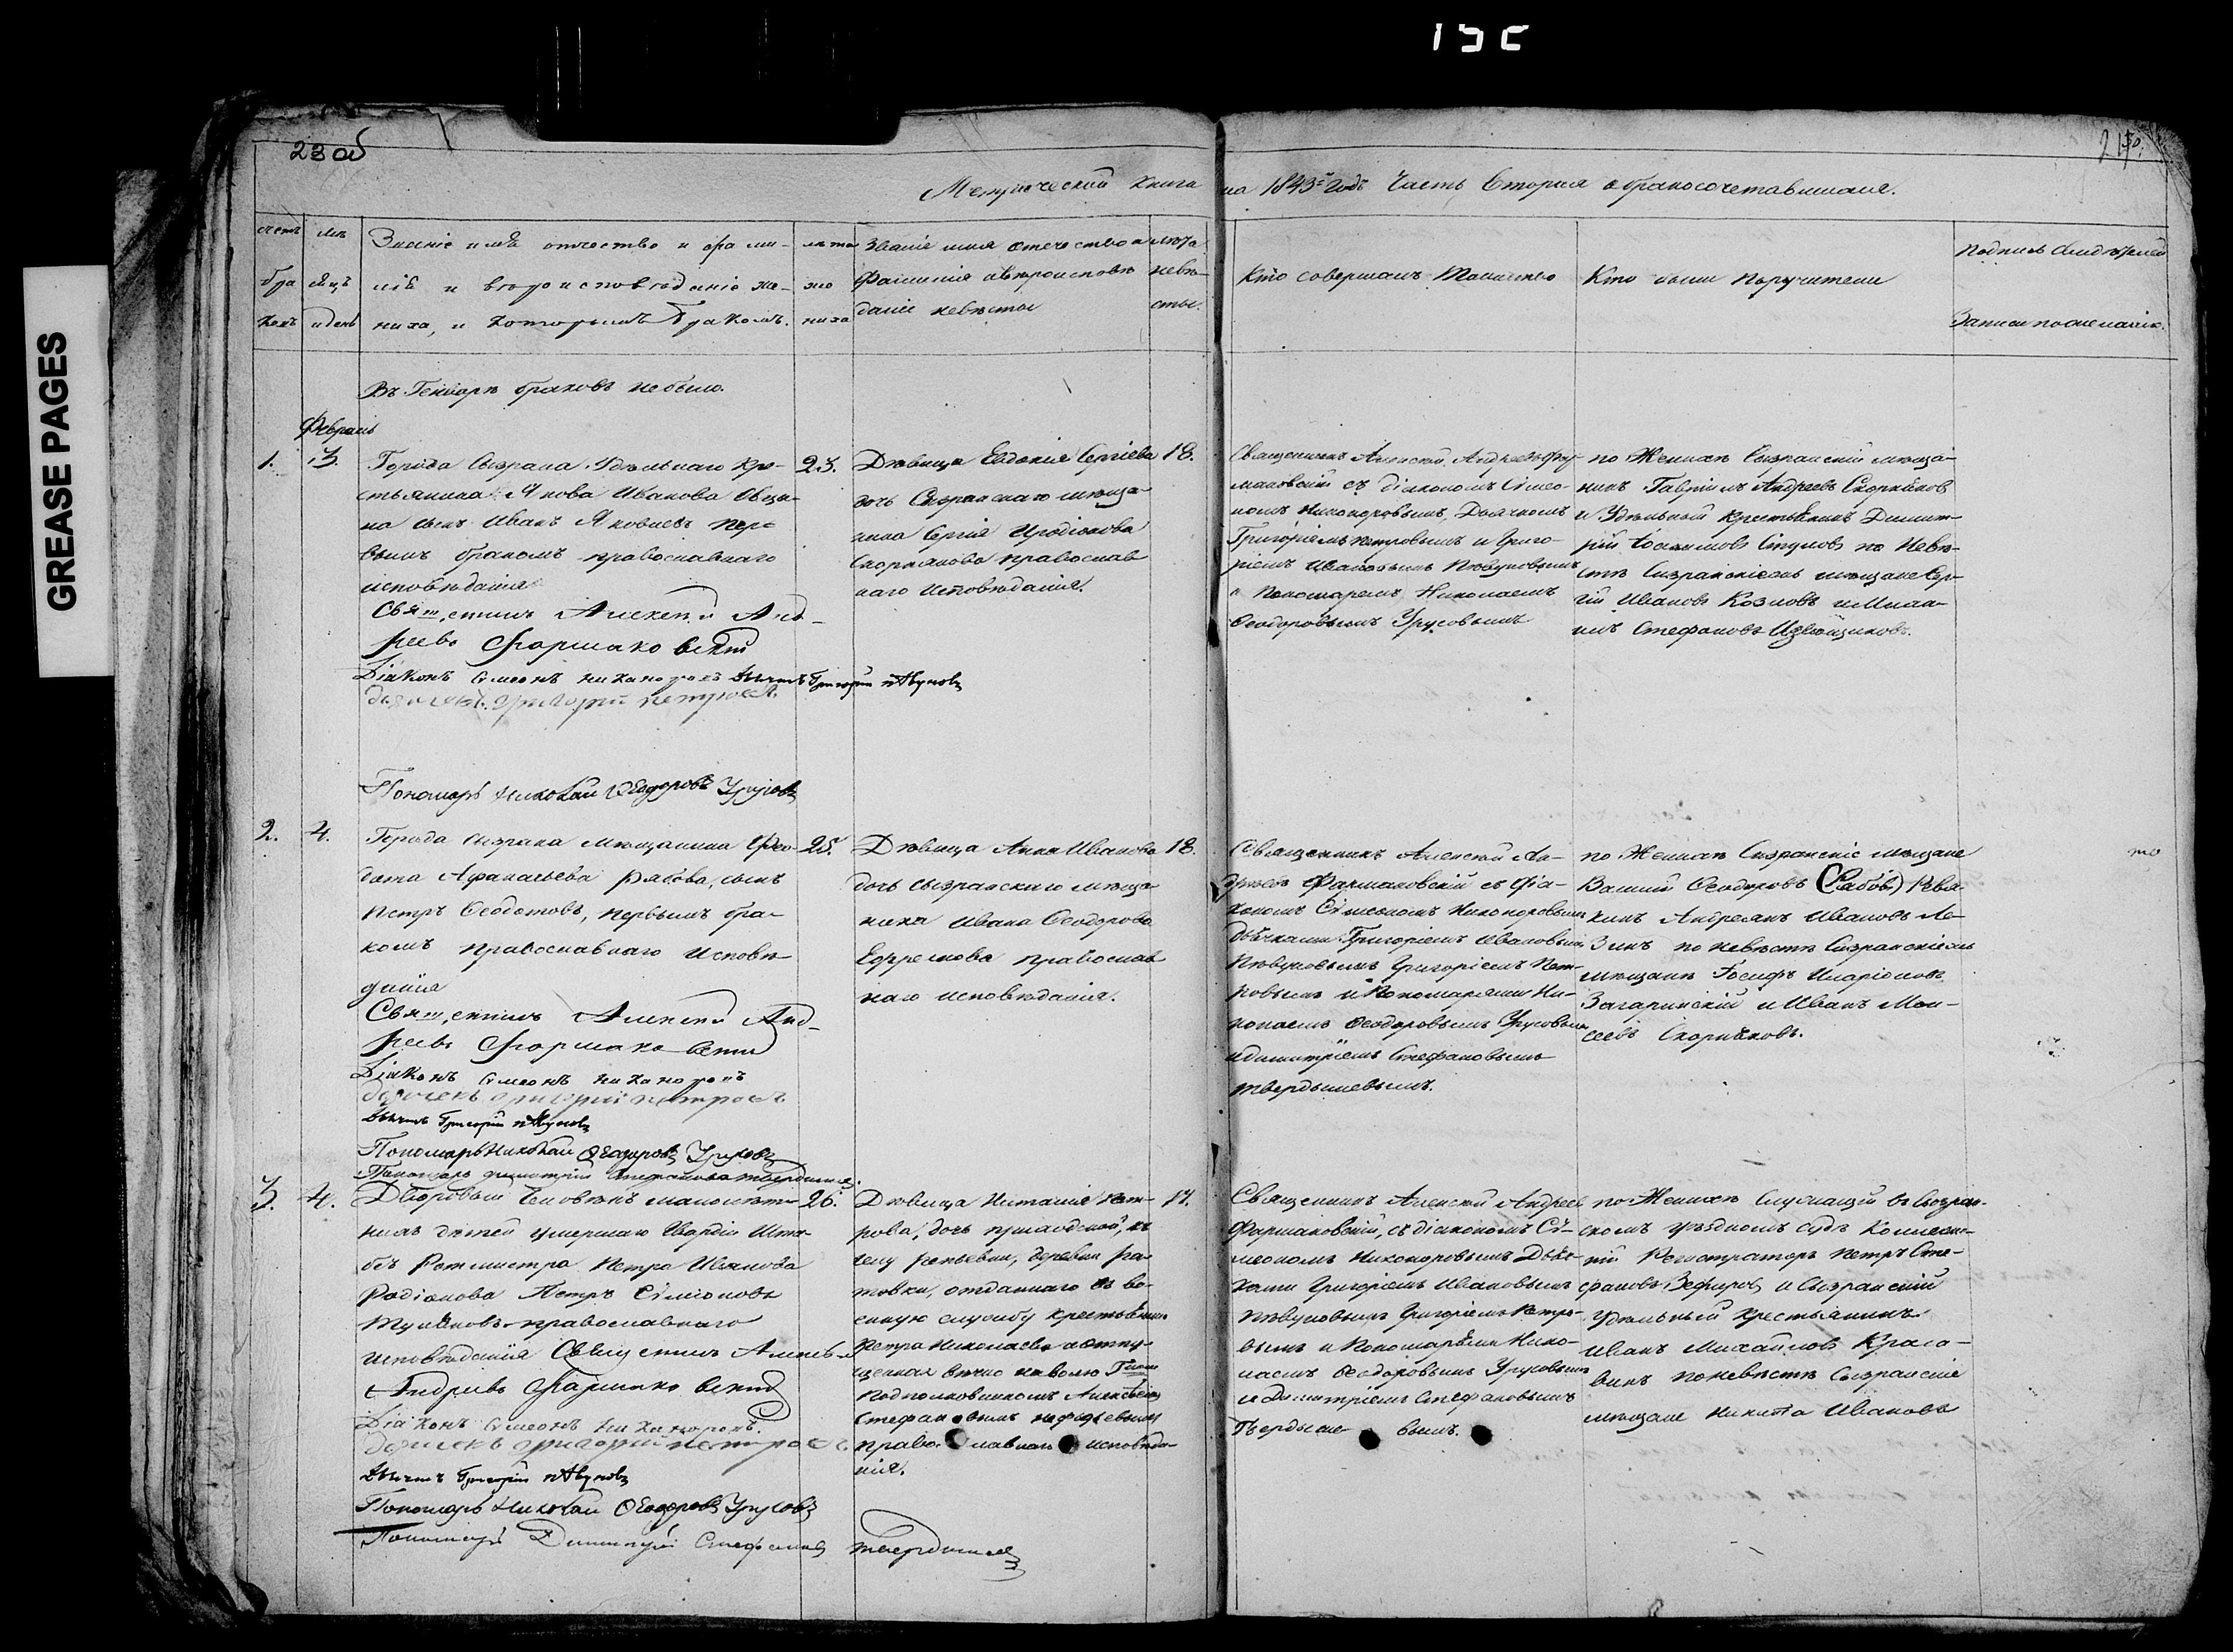 GREASE PAGES
23 об
Метрической книга на 1843й Годъ Часть Вторая о бракосочетавшихся.
счетъ бра ковъ
мѣ сяцъ и день
Званіе имя отчество и фами-
лія и вѣроисповѣданіе же-
ниха, и которымъ бракомъ.
лѣта же ниха
Званіе имя отечество и
Фамилія и вѣроисповѣ
даніе невѣсты
лѣта
невѣ-
сты.
Кто совершалъ Таинство
Кто были поручители
Подпись свидѣтелей
Записи по желанію.
Въ Генварѣ браковъ небыло.
Февраль
1.
3.
Города Сызрана Удѣльнаго кре-
стьянина Якова Иванова
на сынъ Иванъ Яковлевъ пер-
вымъ бракомъ православнаго
исповѣданія
23.
Священникъ Алексей Анд-
реевъ Фармаковскій
Діаконъ Симеонъ Никаноровъ Дьячекъ Григорій Пѣвуновъ
дьячекъ григорій петровъ
Пономарь Николай Ѳеодоровъ Урусовъ
Дѣвица Евдокія Сергіева
дочь Сызранскаго мѣща-
нина Сергія Иродіонова
Скорнякова православ
наго исповѣданія.
18.
Священникъ Алексей Андреевъ Фар-
маковскій съ діакономъ Симео-
номъ Никаноровымъ, Дьячкомъ
Григоріемъ Петровымъ и Григо-
ріемъ Ивановымъ Пѣвуновымъ
и Пономаремъ Николаемъ
Ѳеодоровымъ Урусовымъ
по Женихѣ Сызранскій мѣща-
нинъ Гавріилъ Андреевъ Скорняковъ
и Удѣльный крестьянинъ Димит-
рій по Невѣ-
стѣ Сызранскіемъ мѣщане Сер-
гій Ивановъ Козловъ и Миха-
илъ Стефановъ Извощиковъ.
2.
4.
Города Сызрана мѣщанина Ѳео-
дота Афанасьева Рябова, сынъ
Петръ Ѳеодотовъ, первымъ бра-
комъ православнаго исповѣ
данія
25.
Священникъ Алексей Анд-
реевъ Фармаковскій
Діаконъ Симеонъ Никаноровъ
дьячекъ григорій петровъ
Дьячекъ Григорій Пѣвуновъ
Пономарь Николай Ѳеодоровъ Урусовъ
Пономарь Димитрій Стефановъ Твердышевъ.
Дѣвица Анна Иванова
дочь сызранскаго мѣща-
нина Ивана Ѳеодорова
Ефремова православ
наго исповѣданія.
18.
Священникъ Алексей Ан-
дреевъ Фармаковскій съ діа-
кономъ Симеономъ Никаноровымъ
дьячками Григоріемъ Ивановымъ
Пѣвуновымъ Григоріемъ Пет-
ровымъ и Пономарями Ни-
колаемъ Ѳеодоровымъ Урусовымъ
и димитріемъ Стефановымъ
Твердышевымъ.
по Женихѣ Сызранскіе мѣщане
Василій Ѳеодоровъ (Рябовъ)
Андреянъ Ивановъ
по невѣстѣ Сызранскіемъ
мѣщанѣ Іосифъ Иларіоновъ
Загаринскій и Иванъ Мои-
сеевъ Скорняковъ.
3.
4.
Дворовый человѣкъ малолѣт-
нихъ дѣтей умершаго Гвардіи Шта-
бъ Ротмистра Петра Иванова
Родіонова Петръ Симіоновъ
православнаго
исповѣданія
26.
Священникъ Алексѣй
Андреевъ Фармаковскій
Діаконъ Симеонъ Никаноровъ.
дьячекъ григорій петровъ.
Дьячекъ Григорій Пѣвуновъ
Пономарь Николай Ѳеодоровъ Урусовъ
Пономарь Димитрій Стефановъ Твердышевъ
Дѣвица Наталія Пет-
рова, дочь
деревни Ра-
товки, отданнаго въ во-
енную службу крестьянина
Петра Николаева и отпу-
щенная вѣчно на волю
Подполковникомъ Алексѣемъ
Стефановымъ Нефедьевымъ
православнаго исповѣда-
нія.
17.
Священникъ Алексей Андреевъ
Фармаковскій, съ діакономъ Си-
меономъ Никаноровымъ Дьяч-
ками Григоріемъ Ивановымъ
Пѣвуновымъ Григоріемъ Петро-
вымъ и Пономарями Нико-
лаемъ Ѳеодоровымъ Урусовымъ
и Димитріемъ Стефановымъ
Твердыше- вымъ.
по Женихѣ Служащій въ Сызран-
скомъ уѣздномъ судѣ Коллежс-
кій Регистраторъ Петръ Сте-
фановъ Зефировъ и Сызранскій
удѣльный крестьянинъ
Иванъ Михайловъ Краса-
винъ по невѣстѣ Сызранскіе
мѣщане Никита Ивановъ